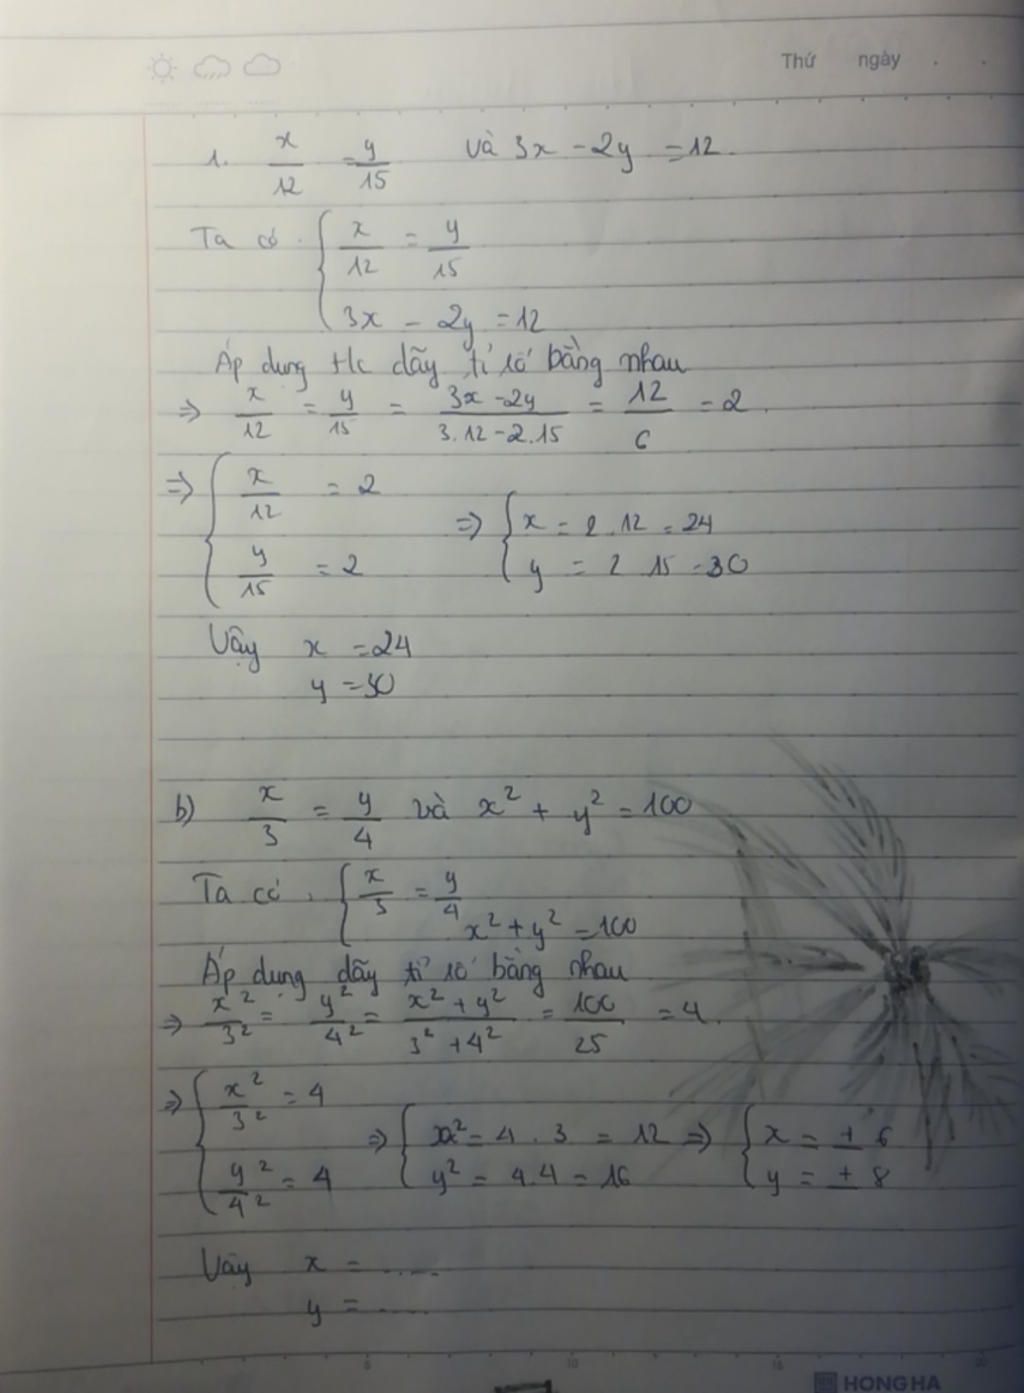 Thứ ngày . .
1. x/12 = y/15 và 3x - 2y = 12.
Ta có . { x/12 = y/15
3x - 2y = 12
Áp dụng t/c dãy tỉ số bằng nhau
=> x/12 = y/15 = (3x - 2y)/(3.12 - 2.15) = 12/6 = 2.
=> { x/12 = 2
y/15 = 2
=> { x = 2.12 = 24
y = 2 15 = 30
Vậy x = 24
y = 30
b) x/3 = y/4 và x² + y² = 100
Ta có . { x/3 = y/4
x² + y² = 100
Áp dụng dãy tỉ số bằng nhau
=> x²/3² = y²/4² = (x² + y²)/(3² + 4²) = 100/25 = 4.
=> { x²/3² = 4
y²/4² = 4
=> { x² = 4.3 = 12
y² = 4.4 = 16
=> { x = ± 6
y = ± 8
Vậy x = .....
y = .....
5 10 15 20
HONG HA